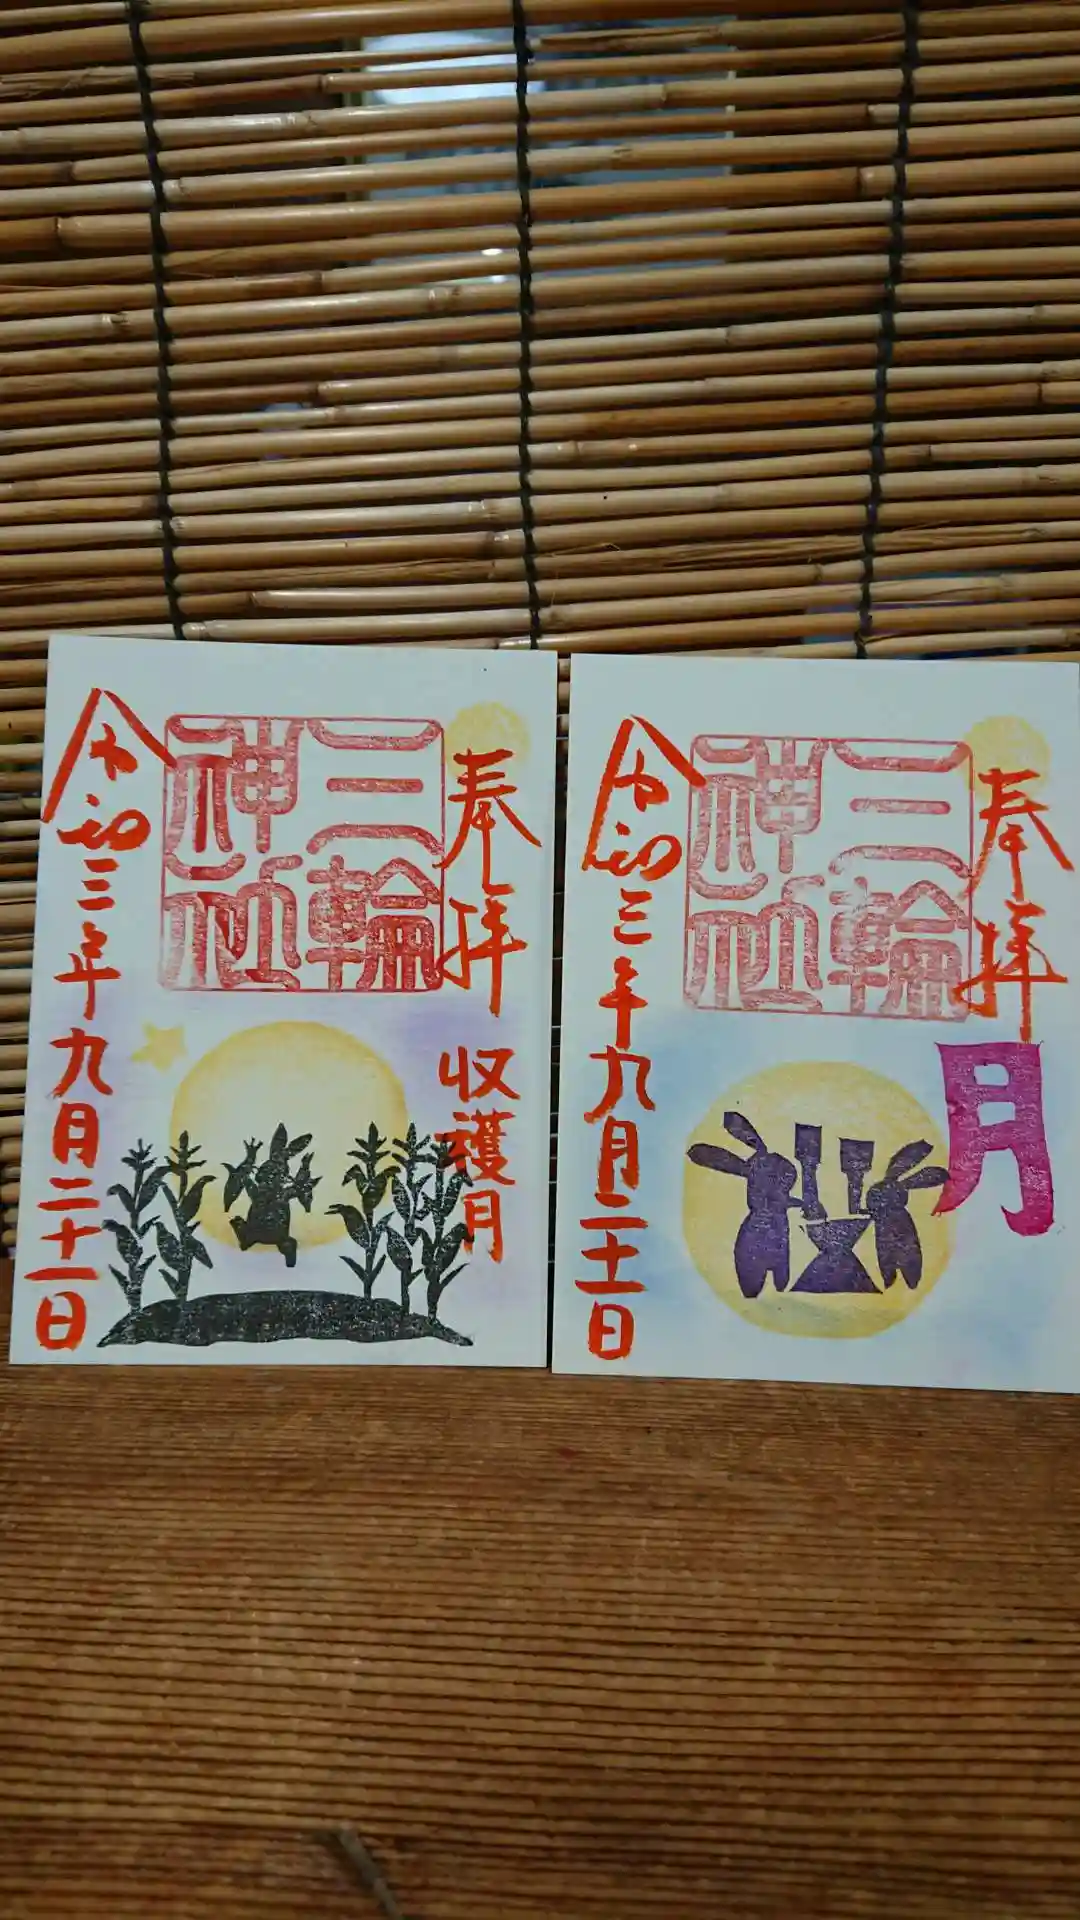 奉拝
収穫月
三輪
神社
令和三年九月二十一日
奉拝
月
三輪
神社
令和三年九月二十一日